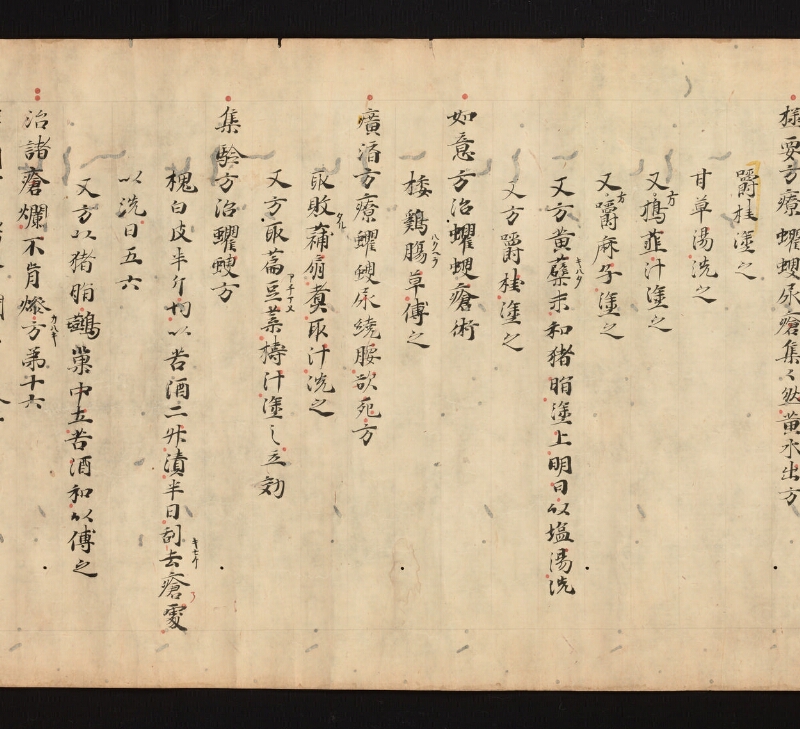 採要方療蠷螋尿瘡集々然黄水出方
嚼桂塗之
甘草湯洗之
又方擣韮汁塗之
又方嚼麻子塗之
又方黄蘗末和猪脂塗上明日以塩湯洗
キハタ
又方嚼桂塗之
如意方治蠷螋瘡術
挼鷄膓草傅之
ハクヘラ
廣濟方療蠷螋尿繞腰欲死方
取敗蒲扇煑取汁洗之
又方取藊豆葉擣汁塗之立効
アチマメ
集驗方治蠷螋方
槐白皮半斤切以苦酒二升漬半日刮去瘡處
以洗日五六
又方以猪脂鷰巢中土苦酒和以傅之
治諸瘡爛不肯燥方第十六
カハキ